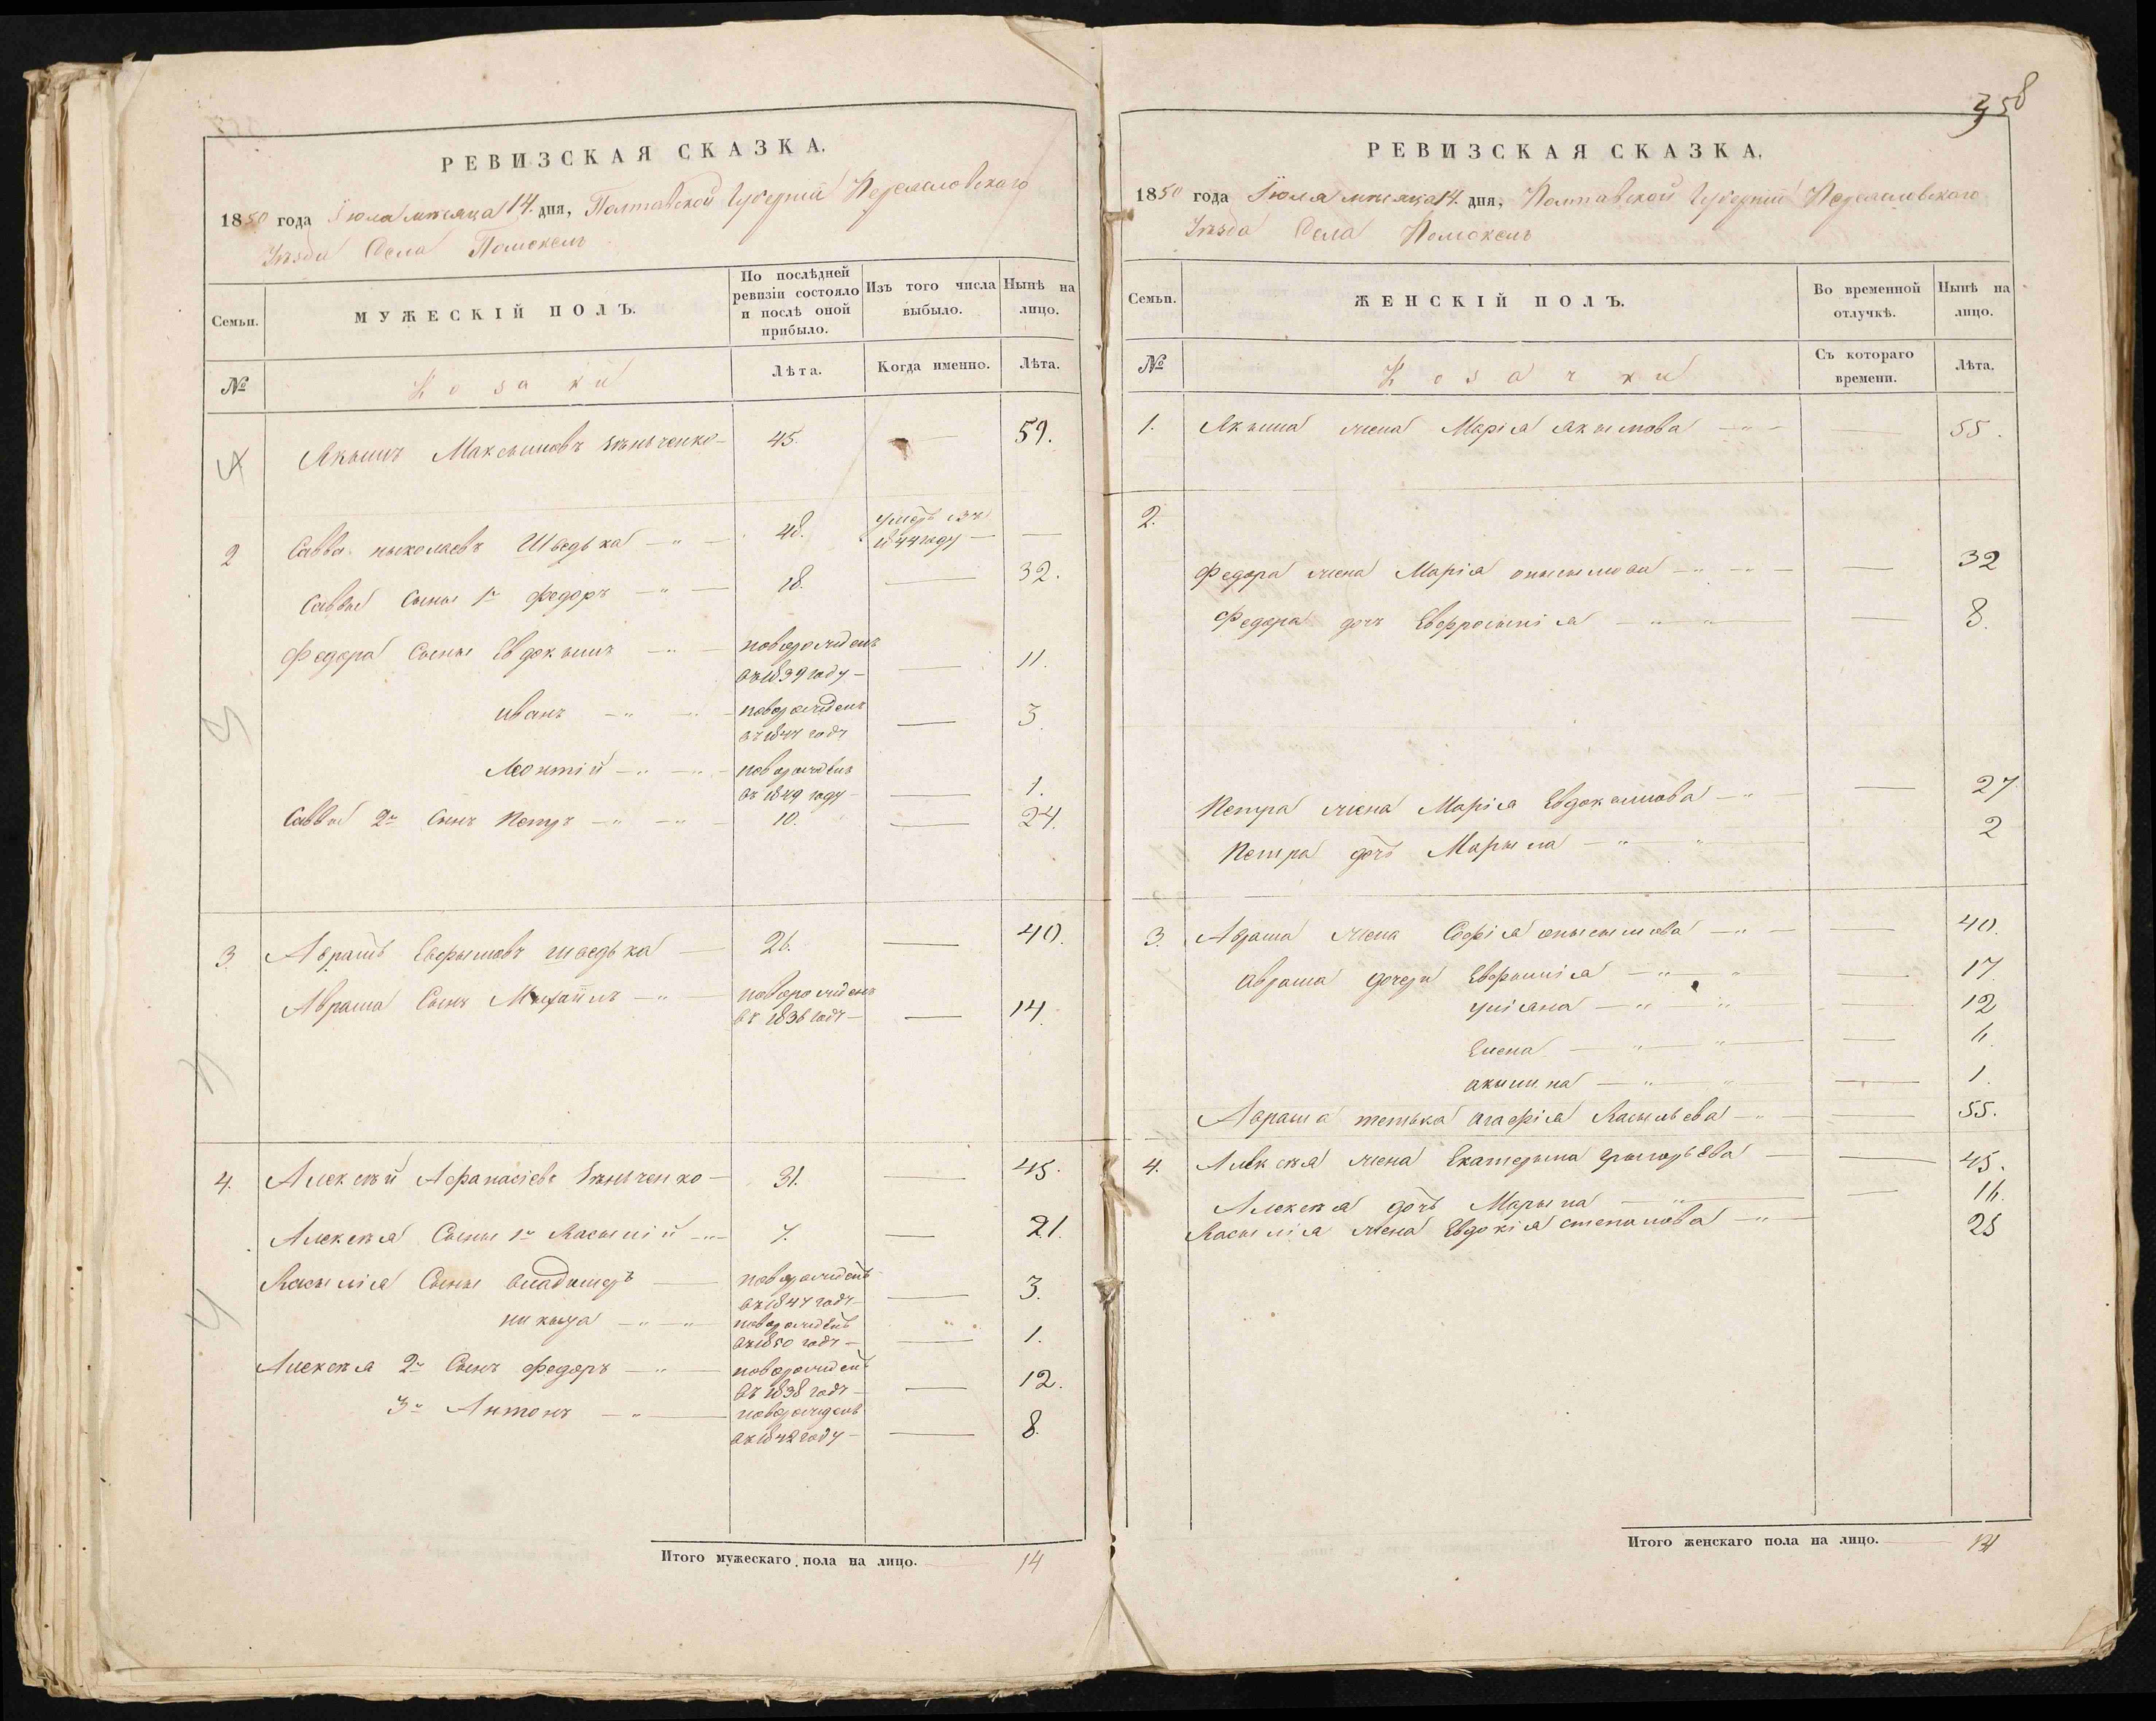 РЕВИЗСКАЯ СКАЗКА.
1850 года Іюля мѣсяца 14. дня, Полтавской Губерніи Переясловского
Уѣзда Села Помоклъ
Семьи.
МУЖЕСКІЙ ПОЛЪ.
По послѣдней ревизіи состояло и послѣ оной прибыло.
Изъ того числа выбыло.
Нынѣ на лицо.
№
Козаки
Лѣта.
Когда именно.
Лѣта.
Якымъ Максымовъ 45. — 59.
2 Савва ныколаевъ Шведька — " — 48. умеръ 1844 году — —
Саввы Сыны 1й федоръ — " — 18. — 32.
Федора Сыны Евдокымъ — " — новорожденъ
въ 1839 году — — 11.
иванъ — " — " — новорожденъ
въ 1847 году — 3
Леонтій — " — " — новорожденъ
въ 1849 году — — 1.
Саввы 2й Сынъ Петръ — " — " — 10. — 24.
3. Аврамъ Евфымовъ шведька — 26. — 40.
Аврама Сынъ Михаилъ — " — новорожденъ
въ 1836 годѣ — — 14.
4. Алексѣй Афанасіевъ — 31. — 45.
Алексѣя Сыны 1й Васылій — " — 7. — 21.
Васылія Сыны владымеръ — новорожденъ
въ 1847 годѣ — — 3.
никыта — " — " — новорожденъ
въ 1850 годѣ — — 1.
Алексѣя 2й Сынъ федоръ — " — новорожденъ
въ 1838 годѣ — — 12.
3й Антонъ — " — новорожденъ
въ 1842 году — — 8.
Итого мужескаго пола на лицо. 14
358
РЕВИЗСКАЯ СКАЗКА.
1850 года Іюля мѣсяца 14. дня, Полтавской Губерніи Переясловского
Уѣзда Села Помоклъ
Семьи.
ЖЕНСКІЙ ПОЛЪ.
Во временной отлучкѣ.
Нынѣ на лицо.
№
Козачки
Съ котораго времени.
Лѣта.
1. Якыма жена Марія Якымова — " — — 55.
2.
Федора жена Марія онысымова — " — " — — 32
Федора дочь Евфросинія — " — " — 8.
Петра жена Марія Евдокымова — " — — 27
Петра дочь Марына — " — " — 2
3. Аврама жена Софія онысымова — " — — 40.
Аврама дочери Евфымія — " — " — 17.
уліана — " — " — 12
Елена — " — " — 6.
акылина — " — " — 1.
Аврама тетька агафія Васыльева — " — — 55.
4. Алексѣя жена Екатерына грыгорьева — — 45.
Алексѣя дочь Марына — " — — 16.
Васылія жена Евдокія степанова — " — 25
Итого женскаго пола на лицо.